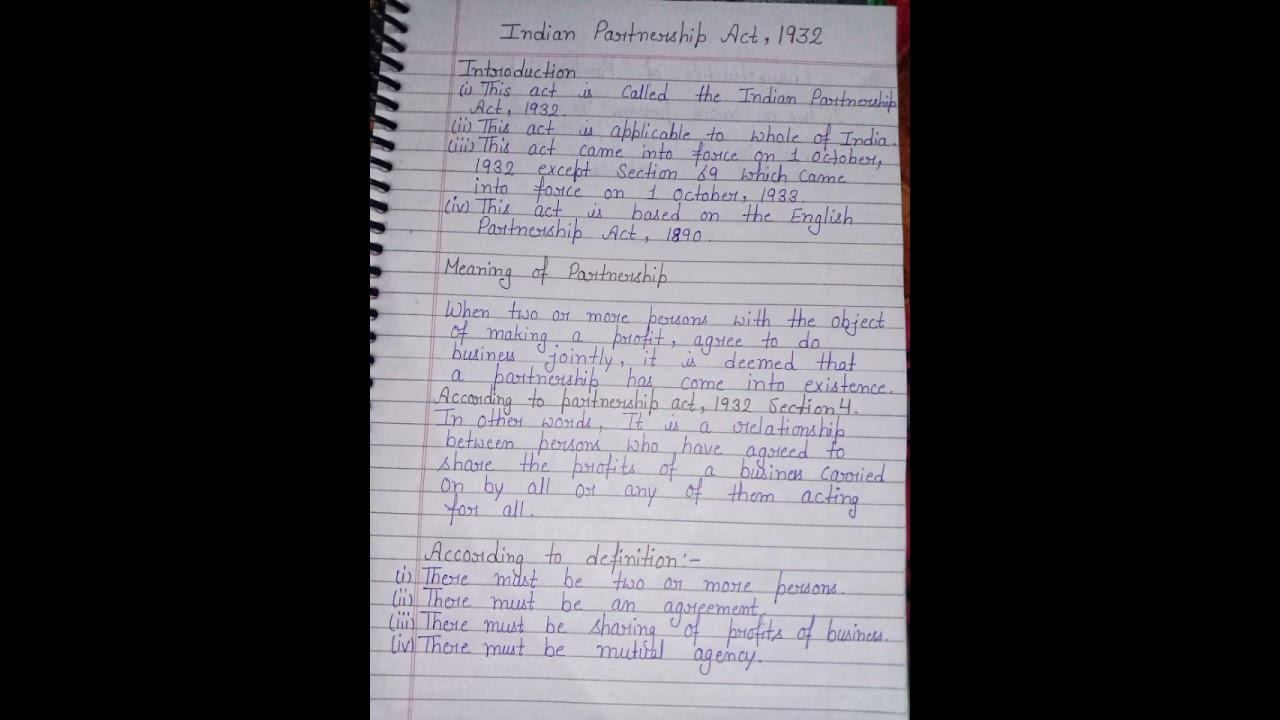 Indian Partnership Act, 1932
Introduction
(i) This act is called the Indian Partnership
Act, 1932.
(ii) This act is applicable to whole of India.
(iii) This act came into force on 1 October,
1932 except Section 69 which came
into force on 1 October, 1933.
(iv) This act is based on the English
Partnership Act, 1890.
Meaning of Partnership
When two or more persons with the object
of making a profit, agree to do
business jointly, it is deemed that
a partnership has come into existence.
According to partnership act, 1932 Section 4.
In other words, It is a relationship
between persons who have agreed to
share the profits of a business carried
on by all or any of them acting
for all.
According to definition:-
(i) There must be two or more persons.
(ii) There must be an agreement.
(iii) There must be sharing of profits of business.
(iv) There must be mutual agency.